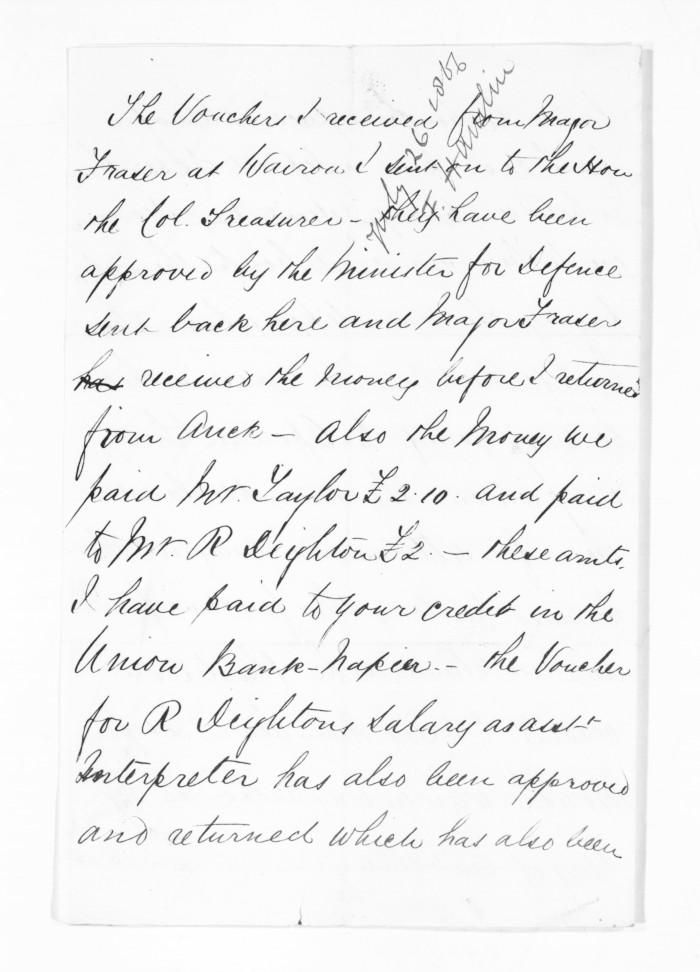 July 26 1866
F. Hamlin
The Vouchers I received from Major
Fraser at Wairoa I sent on to the Hon
the Col. Treasurer - they have been
approved by the Minister for Defence
sent back here and Major Fraser
has received the money before I returned
from Auck - Also the Money we
paid Mr. Taylor £2.10. and paid
to Mr. R Deighton £2. - these amts.
I have paid to your credit in the
Union Bank - Napier. - the Voucher
for R Deightons Salary as asst
Interpreter has also been approved
and returned which has also been